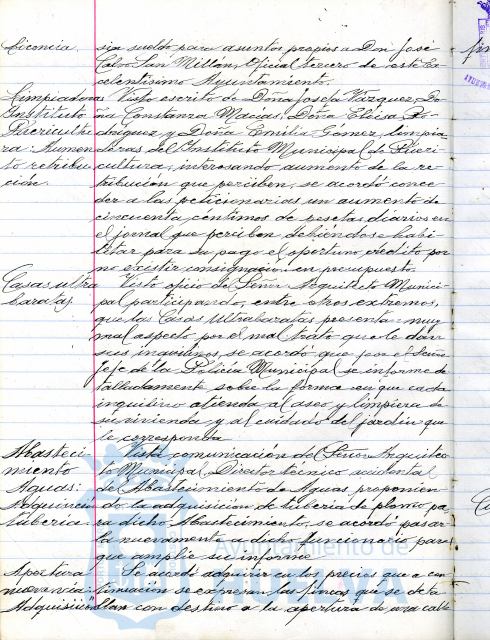 Licencia. sin sueldo para asuntos propios a Don José
Calvo San Millán, Oficial tercero de este Ex-
celentísimo Ayuntamiento.
Limpiadoras Visto escrito de Doña Josefa Vázquez, Do-
Instituto ña Constanza Macías, Doña Elisa Ro-
Puericulti dríguez y Doña Emilia Gómez, limpia-
ra: Aumen doras del Instituto Municipal de Pueri-
to retribu cultura, interesando aumento de la re-
ción. tribución que perciben, se acordó conce-
der a las peticionarias un aumento de
cincuenta céntimos de pesetas diarios en
el jornal que perciben debiéndose habi-
litar para su pago el oportuno crédito por
no existir consignación en presupuesto.
Casas ultra Visto oficio del Señor Arquitecto Munici-
baratas pal participando, entre otros extremos,
que las Casas Ultrabaratas presentan muy
mal aspecto por el mal trato que le dan
sus inquilinos, se acordó que por el Señor
Jefe de la Policía Municipal se informe de-
talladamente sobre la forma en que cada
inquilino atienda al aseo y limpieza de
su vivienda y al cuidado del jardín que
le corresponda
Abasteci- Vista comunicación del Señor Arquitec-
miento to Municipal Director técnico accidental
Aguas: del Abastecimiento de Aguas proponien
Adquisición do la adquisición de tubería de plomo pa-
tubería ra dicho Abastecimiento, se acordó pasar
la nuevamente a dicho funcionario para
que amplíe su informe
Apertura Se acordó adquirir en los precios que a con
nueva vía: tinuación se expresan las fincas que se deta
Adquisición llan con destino a la apertura de una calle
Ayuntamiento de
HUELVA